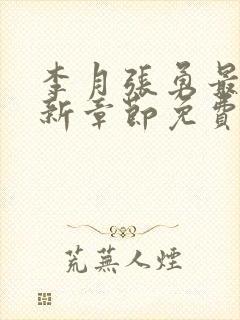 李月張勇最
新章節免費
荒蕪人煙